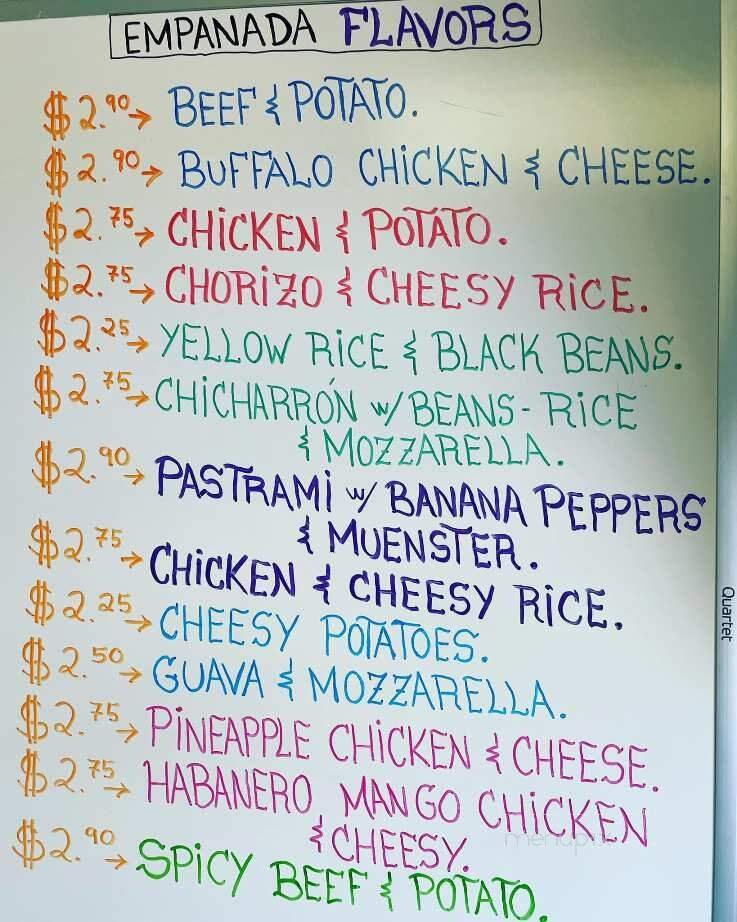 EMPANADA FLAVORS
$2.90→ BEEF & POTATO.
$2.90→ BUFFALO CHiCKEN & CHEESE.
$2.75→ CHiCKEN & POTATO.
$2.75→ CHORiZO & CHEESY RiCE.
$2.25→ YELLOW RiCE & BLACK BEANS.
$2.75→ CHiCHARRÓN w/ BEANS - RiCE
& MOZZARELLA.
$2.90→ PASTRAMi w/ BANANA PEPPERS
& MUENSTER.
$2.75→ CHiCKEN & CHEESY RiCE.
$2.25→ CHEESY POTATOES.
$2.50→ GUAVA & MOZZARELLA.
$2.75→ PiNEAPPLE CHiCKEN & CHEESE.
$2.75→ HABANERO MANGO CHiCKEN
& CHEESY.
$2.90→ SPiCY BEEF & POTATO.
Quartet